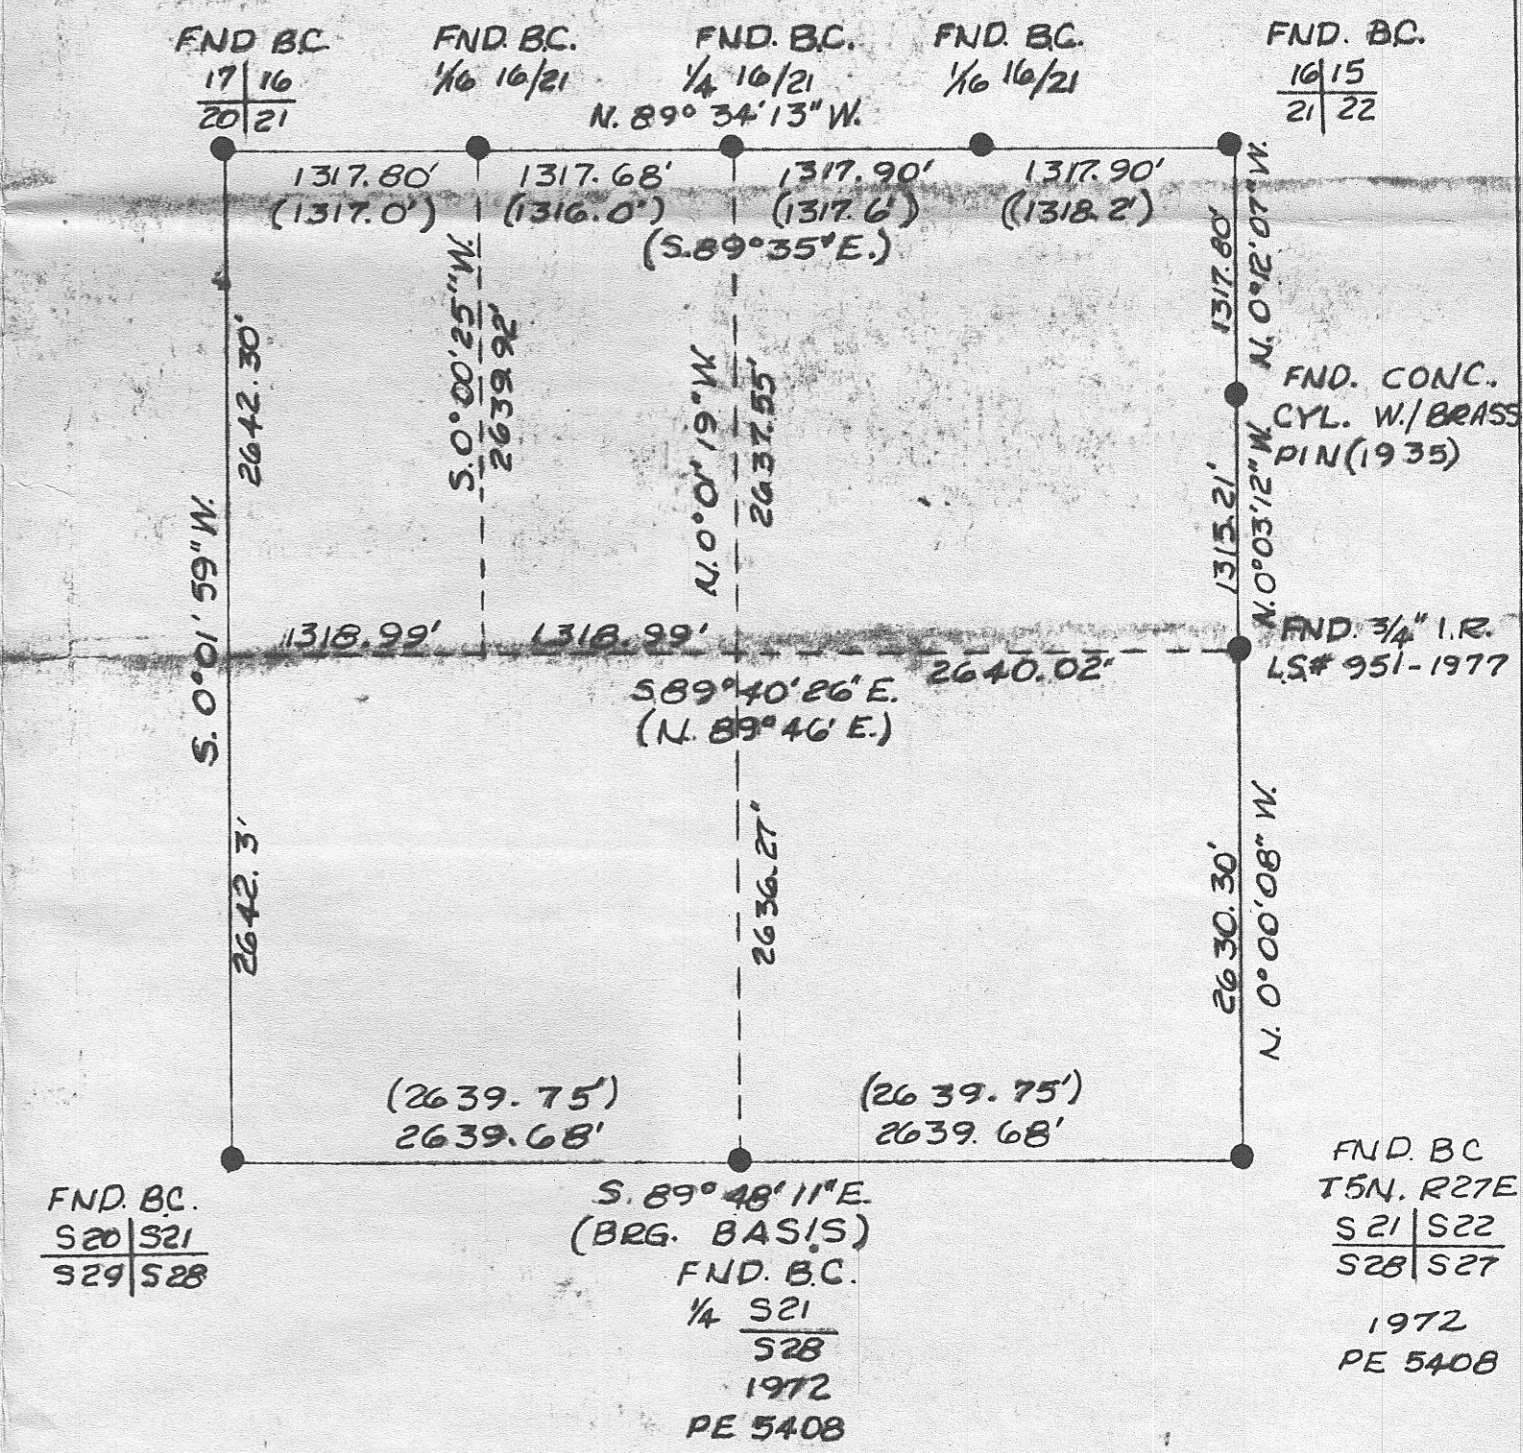 FND BC.
17 | 16
20 | 21
FND. BC.
1/16 16/21
FND. B.C.
1/4 16/21
FND. BC.
1/16 16/21
FND. BC.
16 | 15
21 | 22
N. 89° 34' 13" W.
1317.80'
(1317.0')
1317.68'
(1316.0')
1317.90'
(1317.6')
1317.90'
(1318.2')
(S.89°35'E.)
S. 0° 01' 59" W.
2642.30'
S.0°00'25"W.
2639.92'
N.0°01'19"W.
2637.55'
1317.80'
N. 0°12'07"W.
FND. CONC.
CYL. W./BRASS
PIN (1935)
1315.21'
N.0°03'12"W.
1318.99'
1318.99'
2640.02'
FND. 3/4" I.R.
LS# 951-1977
S89°40'26"E.
(N. 89°46' E.)
2642.3'
2636.27'
2630.30'
N. 0°00'08" W.
(2639.75')
2639.68'
(2639.75')
2639.68'
S. 89° 48' 11" E.
(BRG. BASIS)
FND. BC.
S20 | S21
S29 | S28
FND. B.C.
1/4 S21
S28
1972
PE 5408
FND. BC
T5N. R27E
S21 | S22
S28 | S27
1972
PE 5408